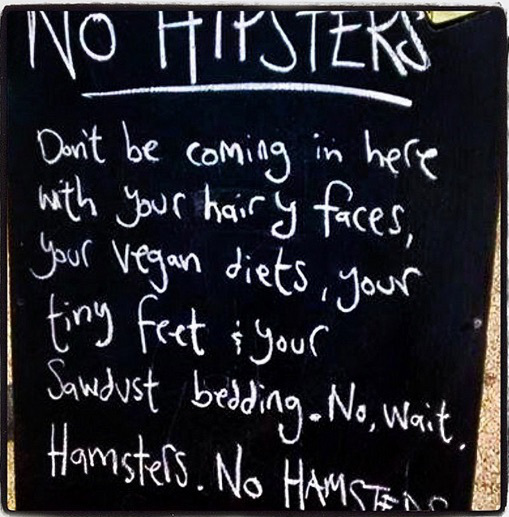 NO HIPSTERS
Don't be coming in here
with your hairy faces,
your vegan diets, your
tiny feet & your
Sawdust bedding. No, wait.
Hamsters. No HAMSTERS